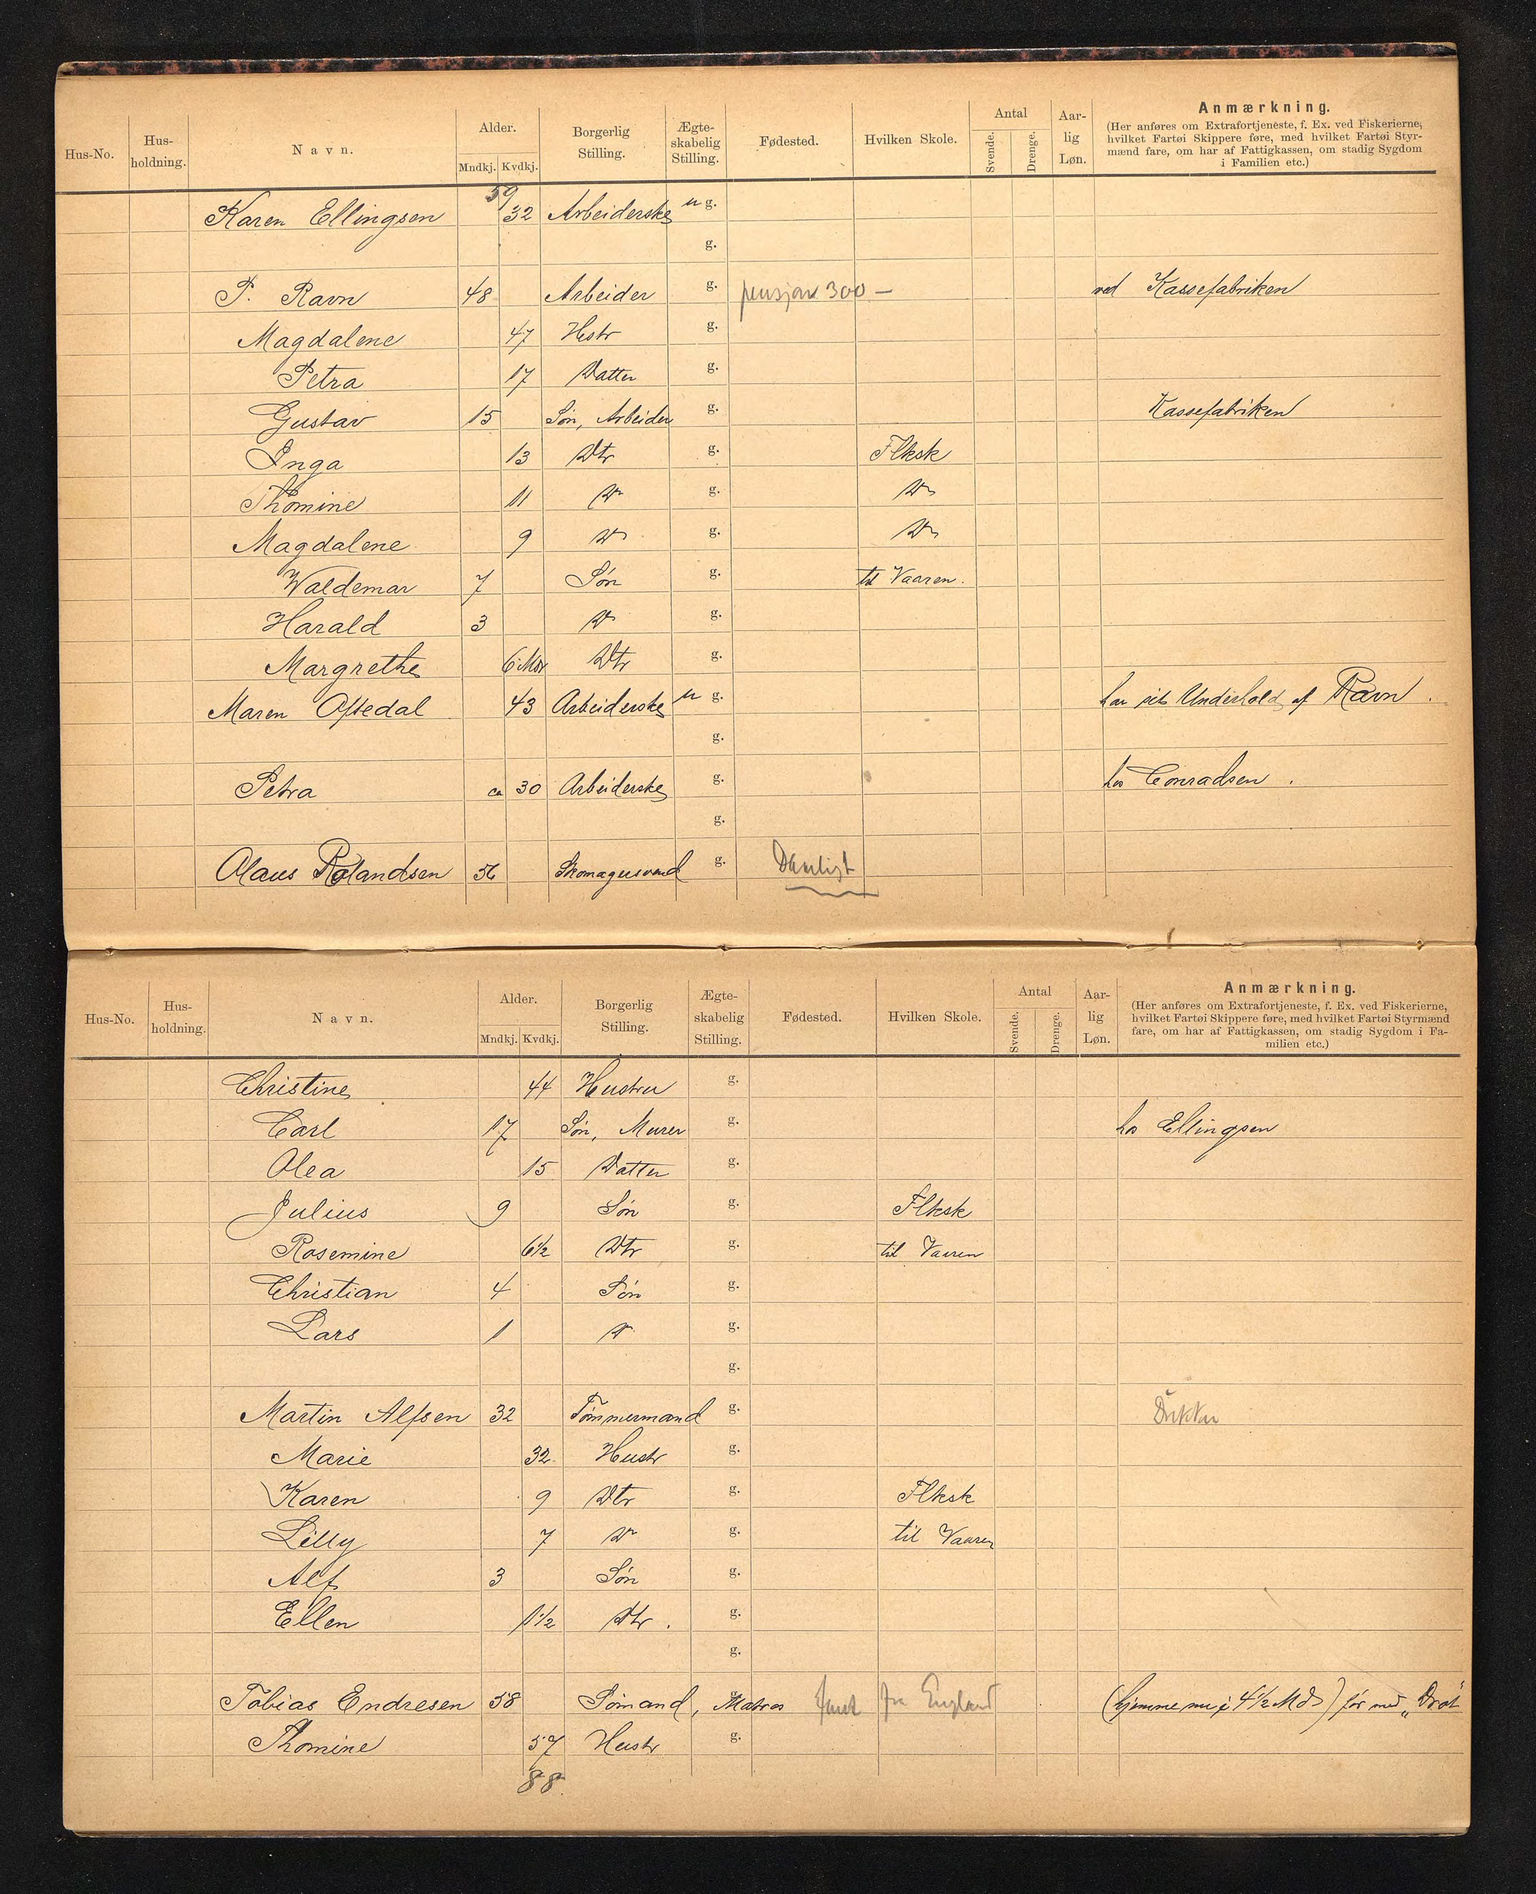 Hus-No. Hus-holdning. Navn. Alder. Mndkj. Kvdkj. Borgerlig Stilling. Ægte-skabelig Stilling. Fødested. Hvilken Skole. Antal Svende. Drenge. Aar-lig Løn. Anmærkning.
(Her anføres om Extrafortjeneste, f. Ex. ved Fiskerierne,
hvilket Fartøi Skippere føre, med hvilket Fartøi Styr-
mænd fare, om har af Fattigkassen, om stadig Sygdom
i Familien etc.)
59
Karen Ellingsen 32 Arbeiderske u g.
g.
P. Ravn 48 Arbeider g. pensjon 300 — ved Kassefabriken
Magdalene 47 Hstr g.
Petra 17 Datter g.
Gustav 15 Søn, Arbeider g. Kassefabriken
Inga 13 Dtr g. Flksk
Thomine 11 Do g. Do
Magdalene 9 Do g. Do
Waldemar 7 Søn g. til Vaaren.
Harald 3 Do g.
Margrethe 6 Mdr Dtr g.
Maren Oftedal 43 Arbeiderske u g. har sit Underhold af Ravn.
g.
Petra ca 30 Arbeiderske g. hos Conradsen.
g.
Olaus Rolandsen 56 Skomagersvend g. Daarligt
Hus-No. Hus-holdning. Navn. Alder. Mndkj. Kvdkj. Borgerlig Stilling. Ægte-skabelig Stilling. Fødested. Hvilken Skole. Antal Svende. Drenge. Aar-lig Løn. Anmærkning.
(Her anføres om Extrafortjeneste, f. Ex. ved Fiskerierne,
hvilket Fartøi Skippere føre, med hvilket Fartøi Styrmænd
fare, om har af Fattigkassen, om stadig Sygdom i Fa-
milien etc.)
Christine 44 Hustru g.
Carl 17 Søn, Murer g. hos Ellingsen
Olea 15 Datter g.
Julius 9 Søn g. Flksk
Rosemine 6 1/2 Dtr g. til Vaaren
Christian 4 Søn g.
Lars 1 Do g.
g.
Martin Alfsen 32 Tømmermand g. Drikker
Marie 32 Hustr g.
Karen 9 Dtr g. Flksk
Lilly 7 Do g. til Vaaren
Alf 3 Søn g.
Ellen 1 1/2 Dtr. g.
g.
Tobias Endresen 58 Sømand, Matros g. fra England (hjemme nu i 4 1/2 Md) før med „Drot"
Thomine 57 Hustr g.
88